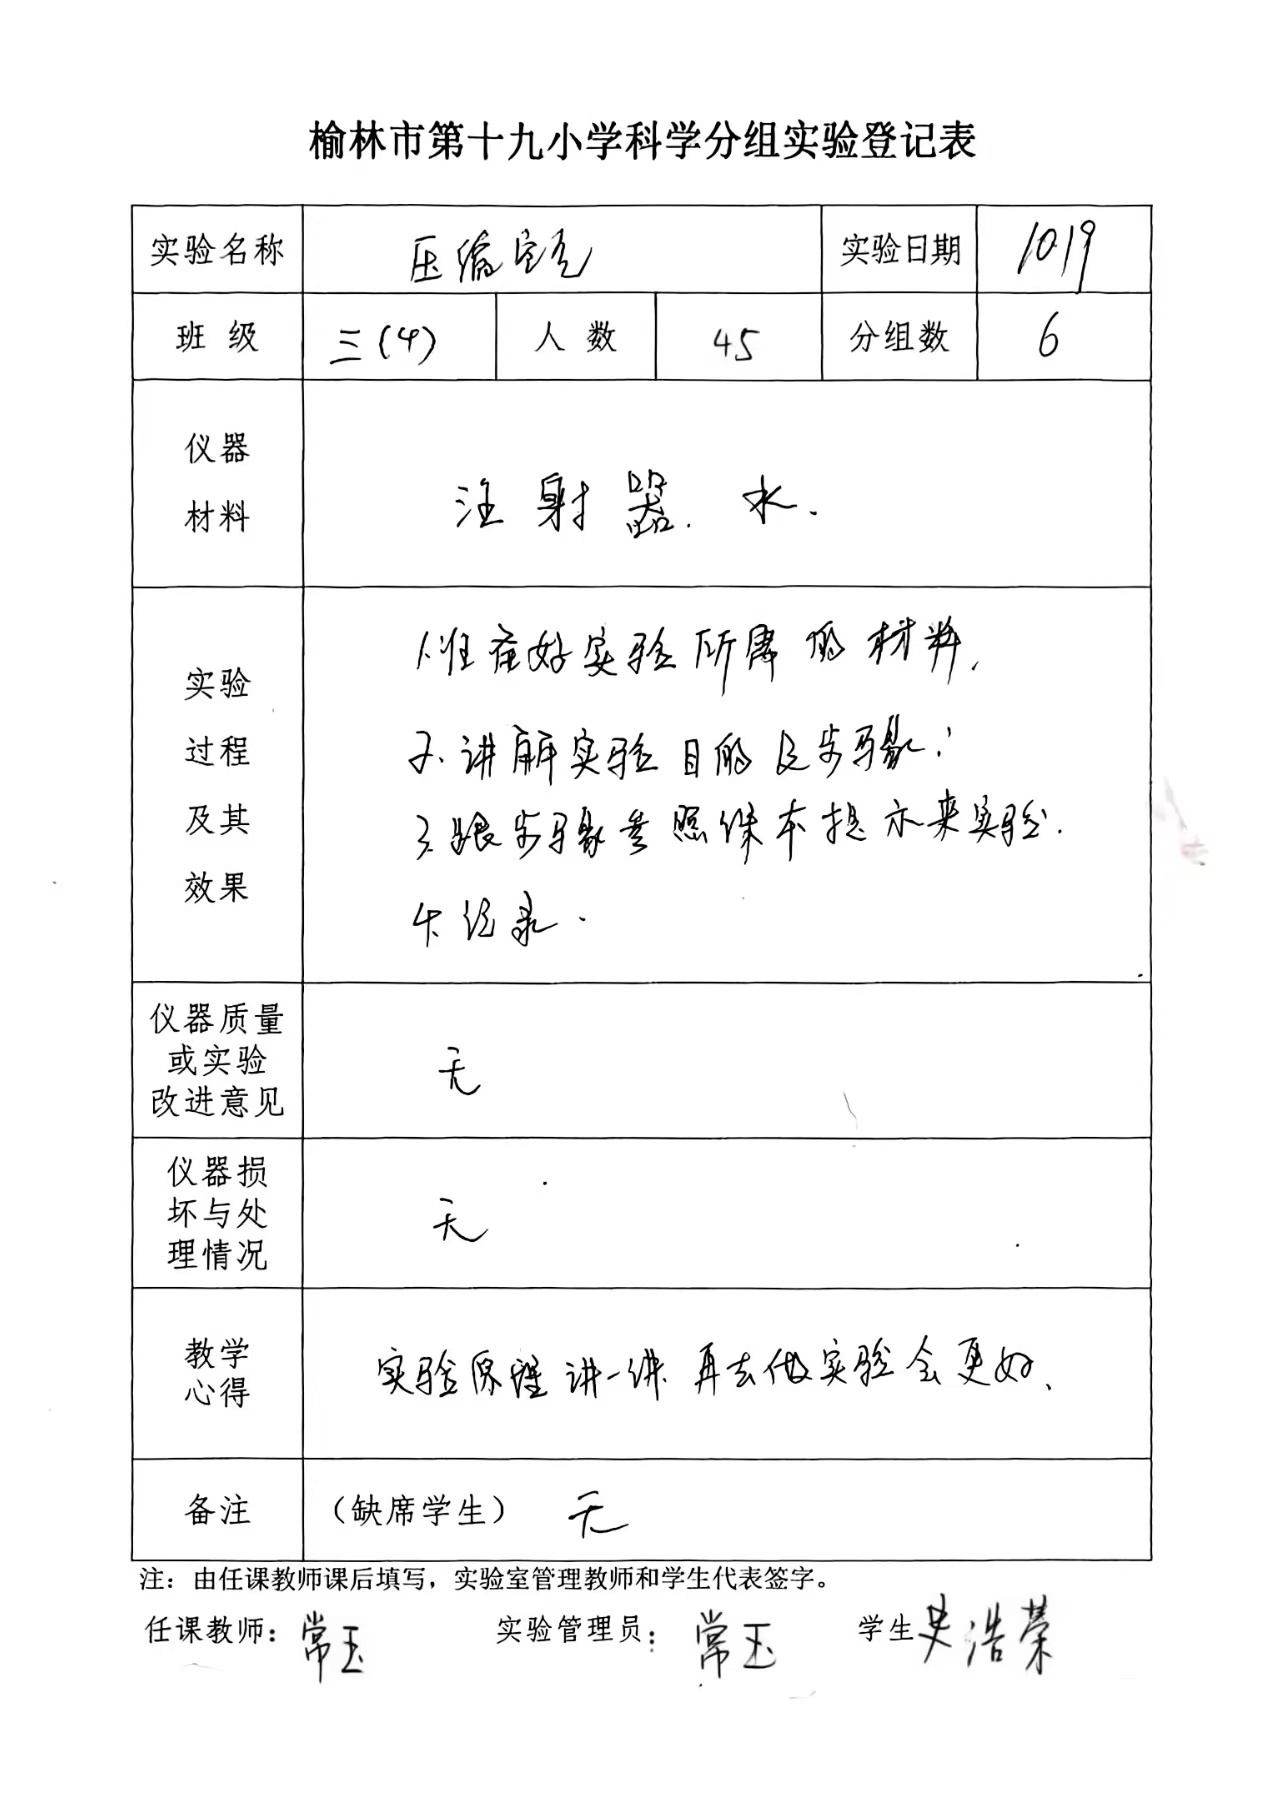 榆林市第十九小学科学分组实验登记表
实验名称 压缩空气 实验日期 10.19
班 级 三(4) 人 数 45 分组数 6
仪器
材料
注射器. 水.
实验
过程
及其
效果
1.准备好实验所需的材料.
2.讲解实验目的及步骤:
3.跟步骤参照课本提示来实验.
4.记录.
仪器质量
或实验
改进意见
无
仪器损
坏与处
理情况
无
教学
心得
实验原理讲一讲.再去做实验会更好、
备注 (缺席学生) 无
注：由任课教师课后填写，实验室管理教师和学生代表签字。
任课教师：常玉 实验管理员：常玉 学生 史浩荣